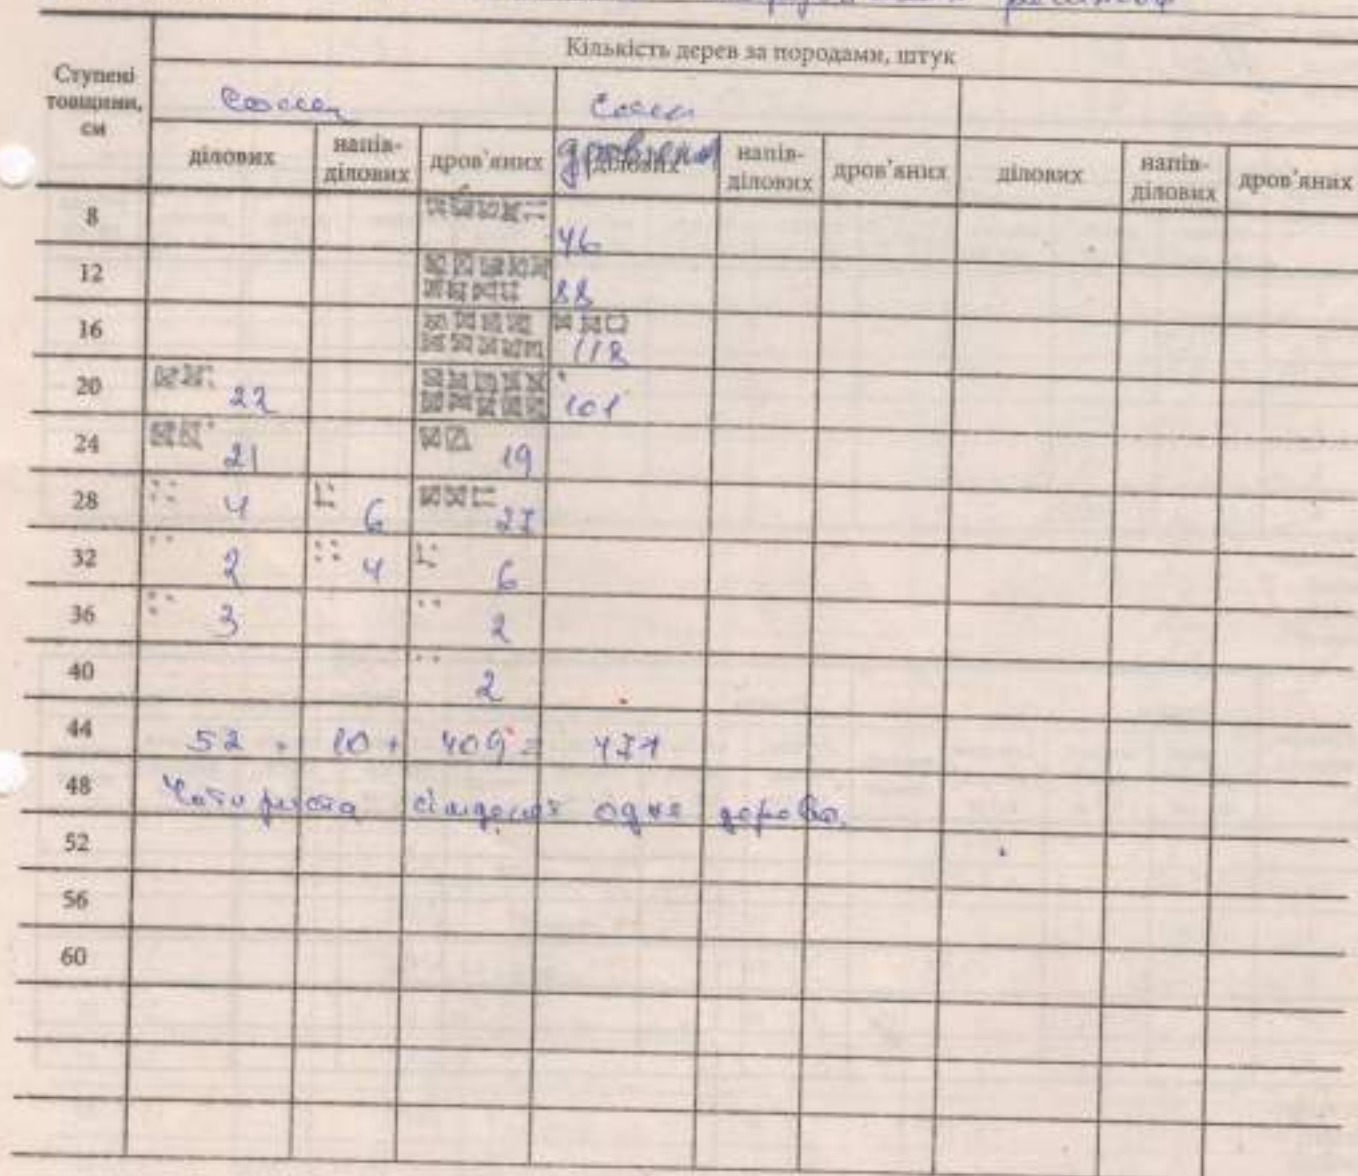 Кількість дерев за породами, штук
Ступені товщини, см
Сосна Сосна
дров'яна
ділових напів-ділових дров'яних ділових напів-ділових дров'яних ділових напів-ділових дров'яних
8 46
12 88
16 118
20 22 101
24 21 19
28 4 6 27
32 2 4 6
36 3 2
40 2
44 52 + 10 + 409 = 471
48 Чотириста сімдесят одне дерево.
52
56
60